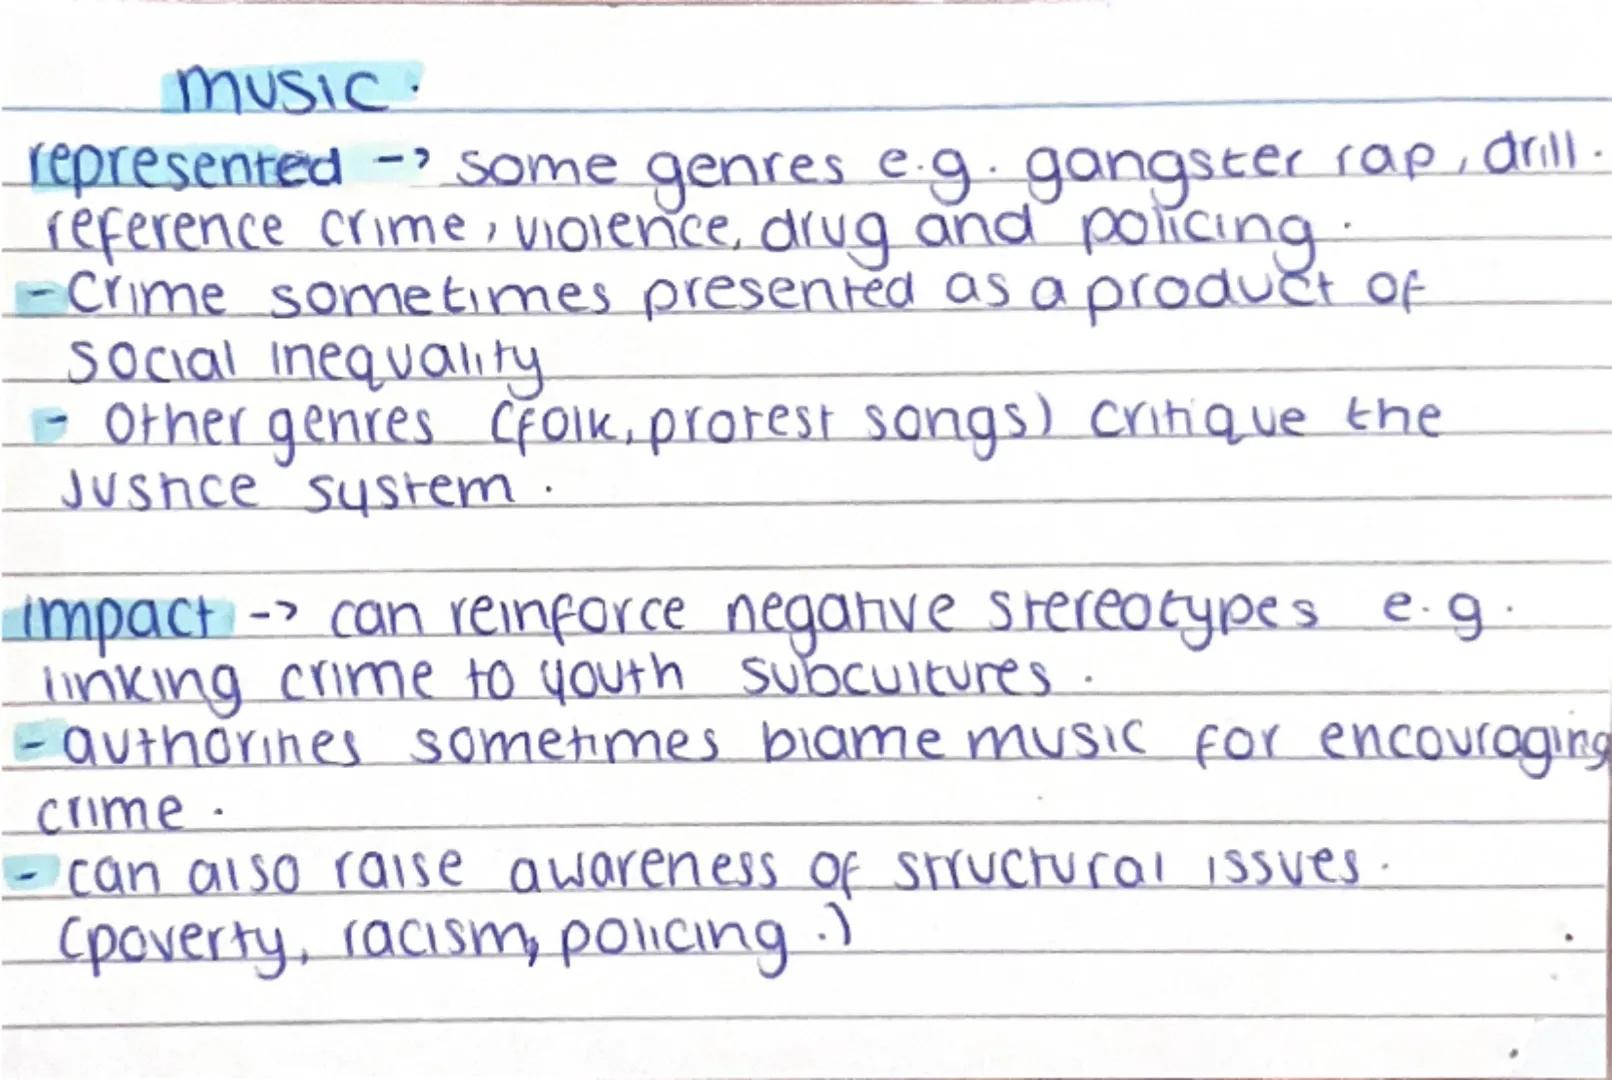 music.
represented -> some genres e.g. gangster rap, drill.
reference crime, violence, drug and policing.
- Crime sometimes presented as a product of
social inequality
- Other genres (folk, protest songs) critique the
Justice system.
impact -> can reinforce negative stereotypes e.g.
linking crime to youth subcultures.
- authorities sometimes blame music for encouraging
crime.
- can also raise awareness of structural issues.
(poverty, racism, policing.)